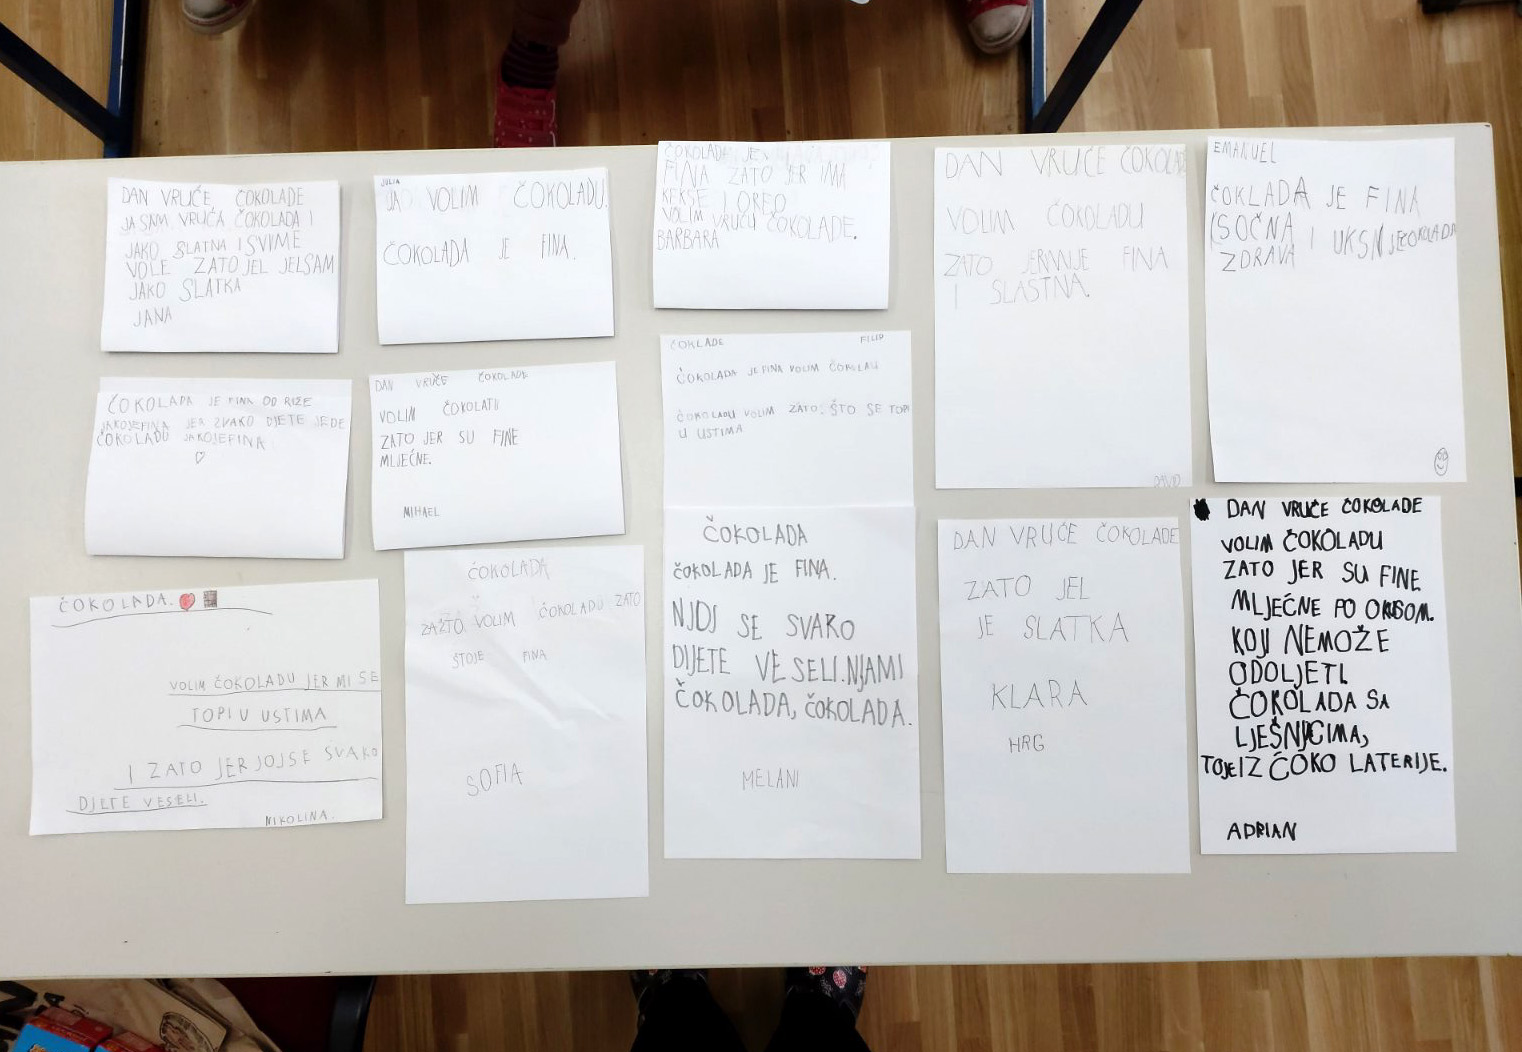 DAN VRUĆE ČOKOLADE
JA SAM VRUĆA ČOKOLADA I
JAKO SLATNA I SVI ME
VOLE ZATO JEL JELSAM
JAKO SLATKA
JANA
JULIA
JA VOLIM ČOKOLADU.
ČOKOLADA JE FINA.
ČOKOLADA JE
FINA ZATO JER IMA
KEKSE I OREO
VOLIM VRUĆU ČOKOLADE.
BARBARA
DAN VRUĆE ČOKOLADE
VOLIM ČOKOLADU
ZATO FINA
I SLASTNA.
DAVID
EMANUEL
ČOKLADA JE FINA
ISOČNA I
ZDRAVA
ČOKOLADA JE FINA OD RIŽE
JAKOJEFINA JER SVAKO DJETE JEDE
ČOKOLADU JAKOJEFINA.
DAN VRUĆE ČOKOLADE
VOLIM
ZATO JER SU FINE
MLJEČNE.
MIHAEL
ČOKLADE FILIP
ČOKOLADA JE FINA VOLIM
ČOKOLADU VOLIM ZATO. ŠTO SE TOPI
U USTIMA
ČOKOLADA.
VOLIM ČOKOLADU JER MI SE
TOPI U USTIMA
I ZATO JER JOJ SE SVAKO
DJETE VESELI.
NIKOLINA.
ČOKOLADA
ZAŽTO VOLIM ČOKOLADU ZATO
ŠTOJE FINA
SOFIA
ČOKOLADA
ČOKOLADA JE FINA.
NJOJ SE SVAKO
DIJETE VESELI. NJAMI
ČOKOLADA, ČOKOLADA.
MELANI
DAN VRUĆE ČOKOLADE
ZATO JEL
JE SLATKA
KLARA
HRG
DAN VRUĆE ČOKOLADE
VOLIM ČOKOLADU
ZATO JER SU FINE
MLJEČNE PO OKUSOM.
KOJI NEMOŽE
ODOLJETI.
ČOKOLADA SA
LJEŠNJICIMA,
TOJEIZ ČOKO LATERIJE.
ADRIAN